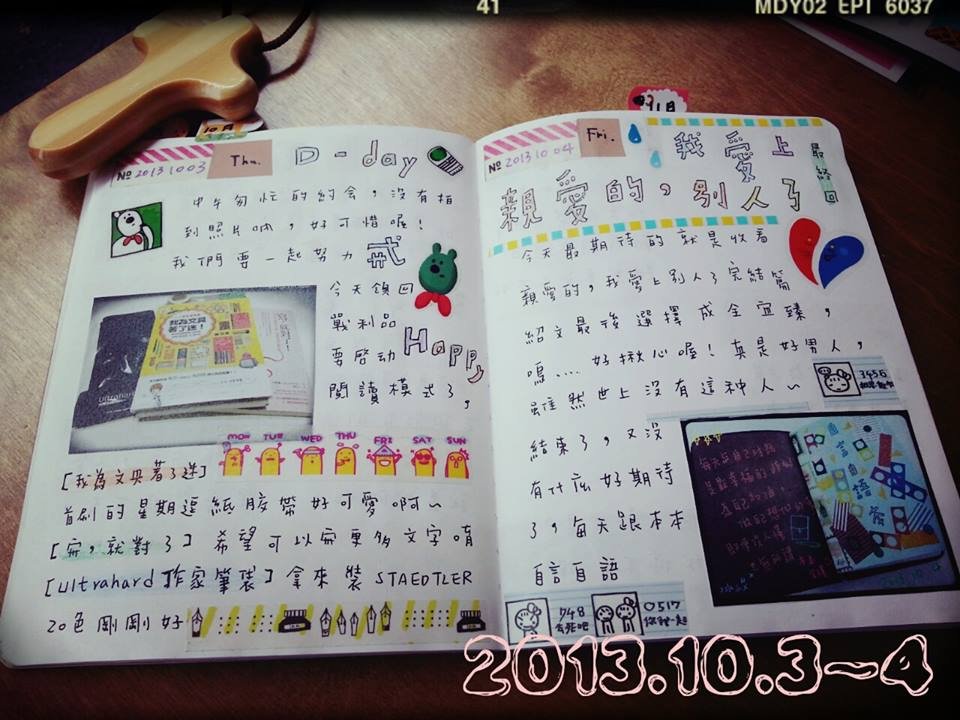 41
MDY02 EPT 6037
10月
№ 2013 10 03
Thu.
D-day
中午匆忙的約会，沒有拍
到照片吶，好可惜喔！
我們要一起努力
今天換回
戰利品
要啓动 Happy
閱讀模式了，
我為文具
著了迷！
ultrahard
MON TUE WED THU FRI SAT SUN
[我為文具著了迷]
首刷的星期逗紙胶帶好可愛啊～
[寫，就對了] 希望可以寫更多文字唷
[ultrahard 作家筆袋] 拿來裝 STAEDTLER
20色剛剛好
11月
№ 2013 10 04
Fri.
我愛上
最終回
親愛的，別人了
今天最期待的就是收看
親愛的，我愛上別人了完結篇
紹文最後選擇成全宜臻，
嗚…. 好揪心喔！真是好男人，
雖然世上沒有這种人～
3456
結束了，又沒
有什麼好期待
了，每天跟本本
自言自語
748
去死吧
0517
你我一起
言自
語
2013.10.3~4